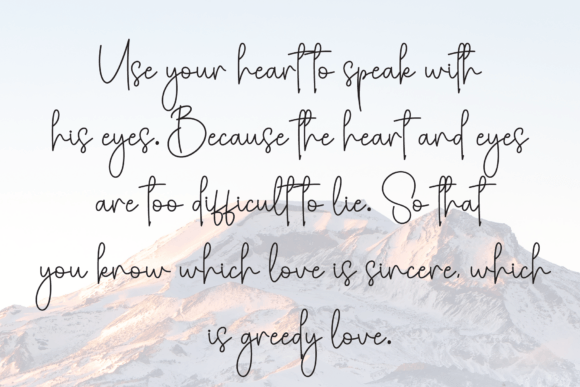 Use your heart to speak with
his eyes. Because the heart and eyes
are too difficult to lie. So that
you know which love is sincere, which
is greedy love.